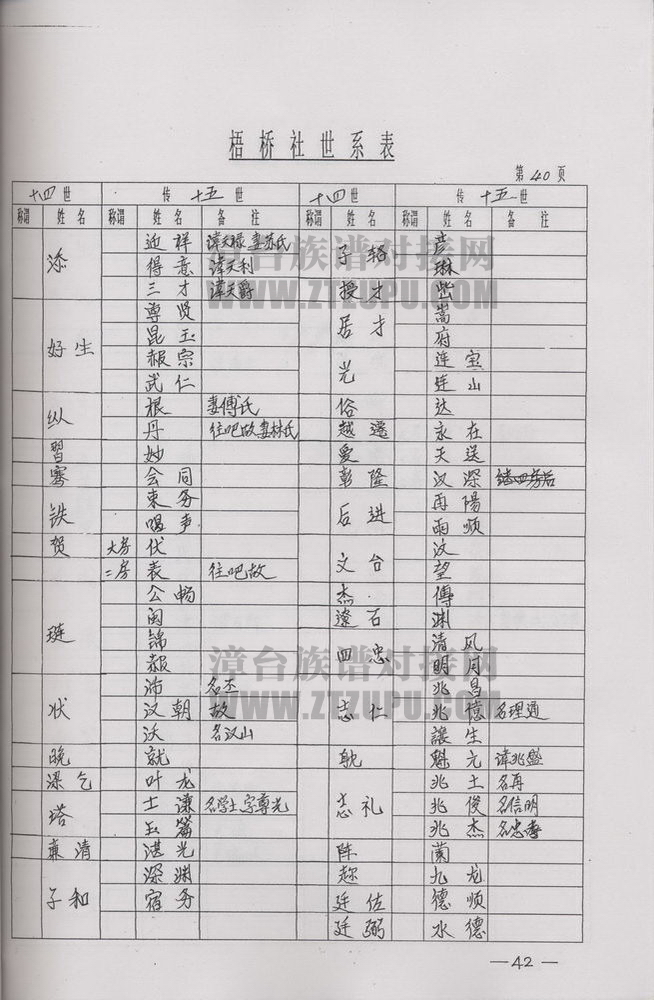 梧桥社世系表
第40页
十四世 传十五世 十四世 传十五世
称谓 姓名 称谓 姓名 备注 称谓 姓名 称谓 姓名 备注
添 近祥 諱天禄妻苏氏 子轻 彦
得意 諱天利 琳
三才 諱天爵 授才
尊贤 嵩
好生 昆玉 居才 府
赧宗 光 连宝
武仁 连山
纵 根 妻傅氏 俗 达
丹 往吧故妻林氏 越遥 永在
習 妙 爱 天送
骞 会同 彰隆 汉深
铁 束务 后进 再陽
唱声 雨顺
贺 大房 伏 文台 汶
二房 表 往吧故 望
琏 公畅 杰 傳
闽 遼石 渊
锦 四忠 清风
赧 明月
状 沛 名丕 志仁 兆昌
汉朝 故 兆億 名理通
沃 名汉山 讓生
晚 就 耽 魁元 諱兆盛
梁乞 叶龙 志礼 兆土 名再
塔 士谦 名学士字尊光 兆俊 名信明
玉篇 兆杰 名忠孝
廉清 湛光 阵 蘭
子和 深渊 趂 九龙
宿务 廷佐 德顺
廷弼 水德
—42—
漳台族谱对接网
WWW.ZTZUPU.COM
漳台族谱对接网
WWW.ZTZUPU.COM